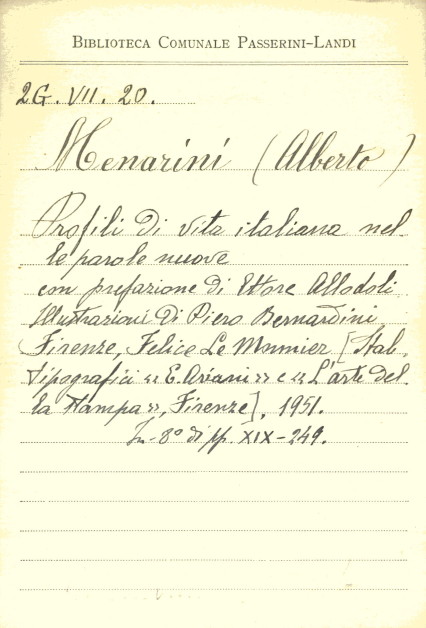 BIBLIOTECA COMUNALE PASSERINI-LANDI
2G. VII. 20.
Menarini (Alberto)
Profili di vita italiana nel-
le parole nuove
con prefazione di Ettore Allodoli
Illustrazioni di Piero Bernardini
Firenze, Felice Le Monnier [Stab.
Tipografici «E. Ariani» e «L'arte del-
la stampa», Firenze], 1951.
In-8° di pp. XIX-249.